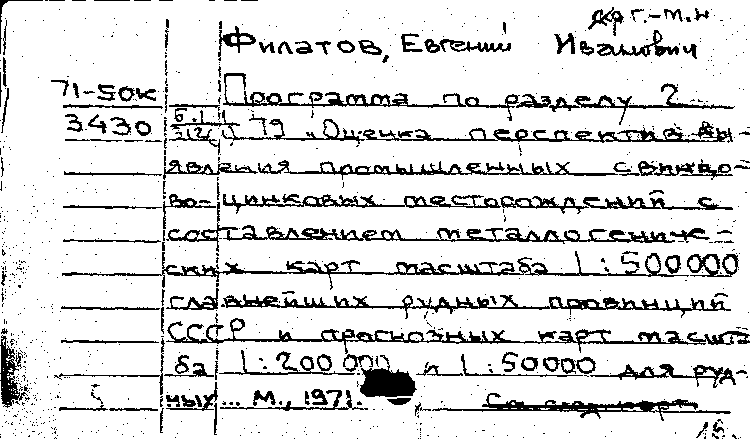 Филатов, Евгений Иванович
71-50к Программа по разделу 2
3430 79 „Оценка перспектив вы-
явления промышленных свинцо-
во-цинковых месторождений с
составлением металлогениче-
ских карт масштаба 1:500000
главнейших рудных провинций
СССР и прогнозных карт масшта
ба 1:200 000 и 1:50000 для руд-
5 ных... М., 1971.
См след карт